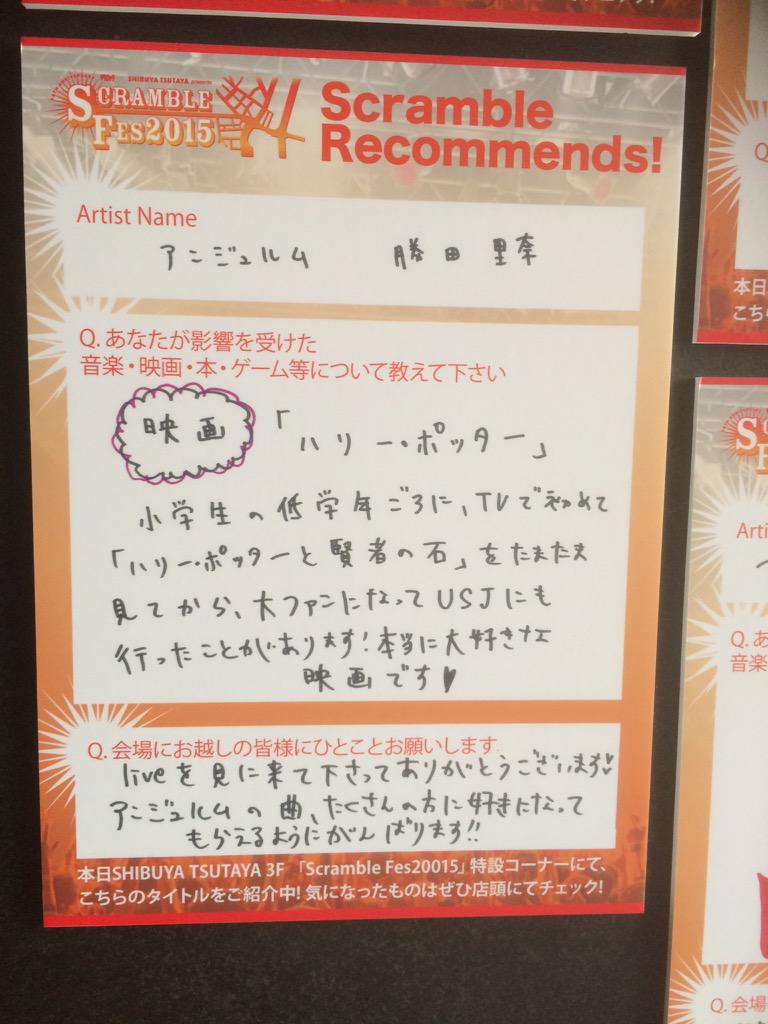 SHIBUYA TSUTAYA presents
SCRAMBLE
FES2015
Scramble
Recommends!
Artist Name
アンジュルム 勝田里奈
Q. あなたが影響を受けた
音楽・映画・本・ゲーム等について教えて下さい
映画 「ハリー・ポッター」
小学生の低学年ごろに、TVで初めて
「ハリー・ポッターと賢者の石」をたまたま
見てから、大ファンになってUSJにも
行ったことがあります!本当に大好きな
映画です♥
Q. 会場にお越しの皆様にひとことお願いします
liveを見に来て下さってありがとうございます♥
アンジュルムの曲、たくさんの方に好きになって
もらえるようにがんばります!!
本日SHIBUYA TSUTAYA 3F 「Scramble Fes20015」特設コーナーにて、
こちらのタイトルをご紹介中! 気になったものはぜひ店頭にてチェック!
Q
本日
こち
S
Arti
Q. あ
音楽
Q. 会場